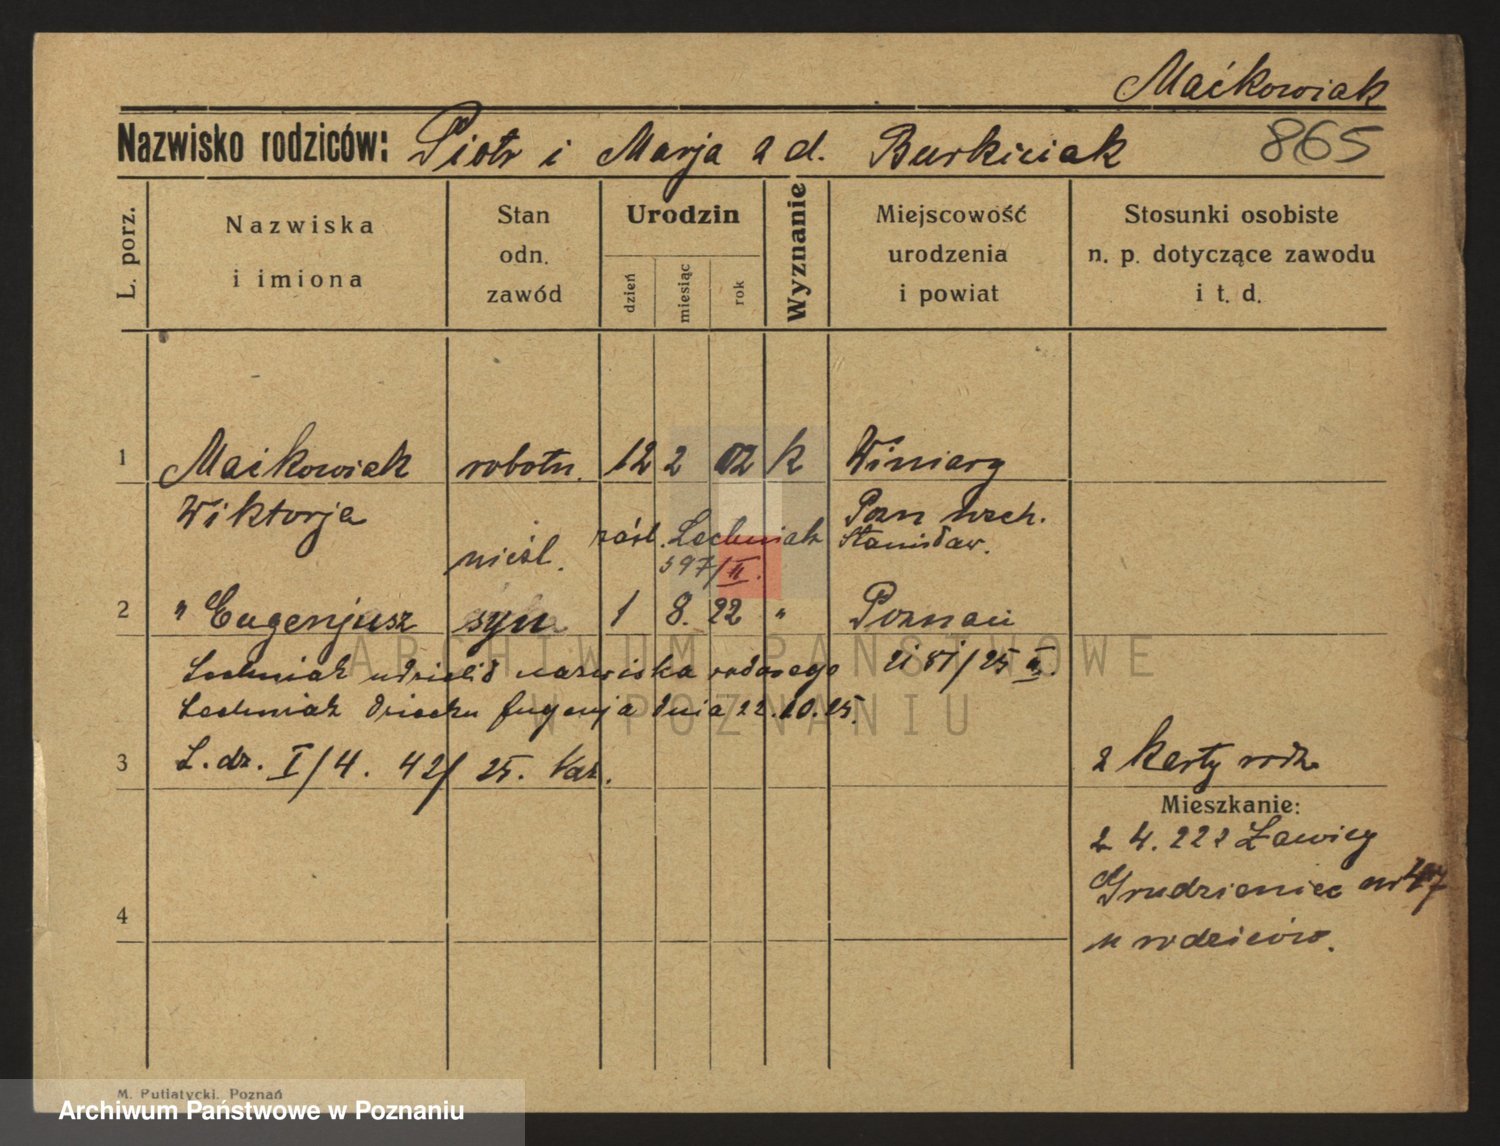 Maćkowiak
865
Nazwisko rodziców: Piotr i Marja z d. Burkiciak
L. porz.
Nazwiska
i imiona
Stan
odn.
zawód
Urodzin
dzień
miesiąc
rok
Wyznanie
Miejscowość
urodzenia
i powiat
Stosunki osobiste
n. p. dotyczące zawodu
i t. d.
1 Maćkowiak robotn. 12 2 02 k Winiary
Wiktorja Pozn wsch.
zaśl. Lechniak Stanisław.
nieśl. 597/II.
2 " Eugenjusz syn 1 8. 22 " Poznań
Lechniak udzielił nazwiska rodowego
Lechniak dziecku Eugenja dnia 22.10.25.
3 L. dz. I/4. 42/25. 2 karty rodz.
Mieszkanie:
2 4. 222 Ławicy
Grudzieniec nr 47
u rodziców.
4
M. Putiatycki, Poznań
ARCHIWUM PAŃSTWOWE
W POZNANIU
Archiwum Państwowe w Poznaniu